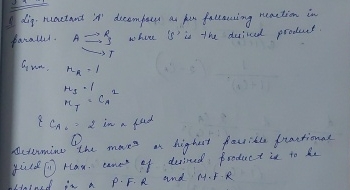 Q. Liq. reactant 'A' decomposes as per following reaction in
parallel. A → R
→ S where 'S' is the desired product.
→ T
Given
r_R = 1
r_S = 1
r_T = C_A²
& C_A₀ = 2 in a feed
Determine (i) the max^m or highest possible fractional
yield (ii) Max. conc^n of desired product is to be
obtained in a P.F.R and M.F.R